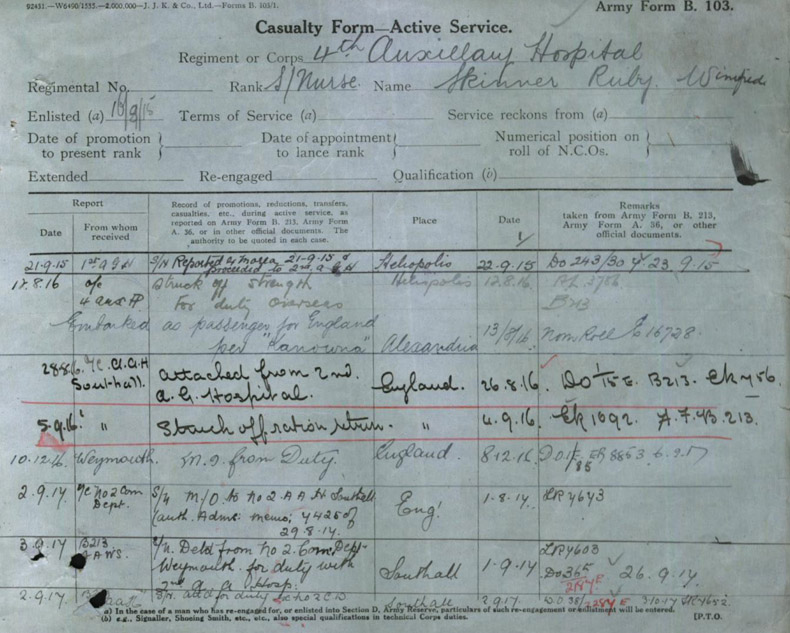 92431.—W6490/1535.—2,000,000—J. J. K. & Co., Ltd.—Forms B. 103/1.
Army Form B. 103.
Casualty Form—Active Service.
Regiment or Corps 4th Auxillary Hospital
Regimental No. Rank S/Nurse. Name Skinner Ruby Winifred
Enlisted (a) 16/8/15 Terms of Service (a) Service reckons from (a)
Date of promotion to present rank } Date of appointment to lance rank } Numerical position on roll of N.C.Os. }
Extended Re-engaged Qualification (b)
Report
Date
From whom received
Record of promotions, reductions, transfers, casualties, etc., during active service, as reported on Army Form B. 213, Army Form A. 36, or in other official documents. The authority to be quoted in each case.
Place
Date
Remarks taken from Army Form B. 213, Army Form A. 36, or other official documents.
21-9-15 1st A G H S/N Reported 21-9-15 & proceeded to 2nd A G H Heliopolis 22.9.15 Do 243/30 23.9.15
17.8.16 o/c 4 Aux H Struck off strength Heliopolis 12.8.16
For duty overseas B213
Embarked as passenger for England
per "Kanowna" Alexandria 13/8/16 Nom Roll E16728
28.8.16 Southall. Attached from 2nd. England. 26.8.16. Do B213.
A.G. Hospital.
5.9.16 " Struck off ration strength. " 4.9.16. A.F.B.213.
10.12.16 Weymouth. from Duty. England 8.12.16
2.9.17 No 2 Com Dept. S/N M/O to No 2 A A H Southall Eng' 1-8-17
(auth. Adms. memo; 4425 of
29-8-17.
3.9.17 B213 S/N. Detd from No 2. Com Dept
Weymouth. for duty with Southall 1-9-17 26.9.17.
2nd Au. A. Hosp:
2.9.17 for duty Southall 2.9.17
(a) In the case of a man who has re-engaged for, or enlisted into Section D, Army Reserve, particulars of such re-engagement or enlistment will be entered.
(b) e.g., Signaller, Shoeing Smith, etc., etc., also special qualifications in technical Corps duties. [P.T.O.